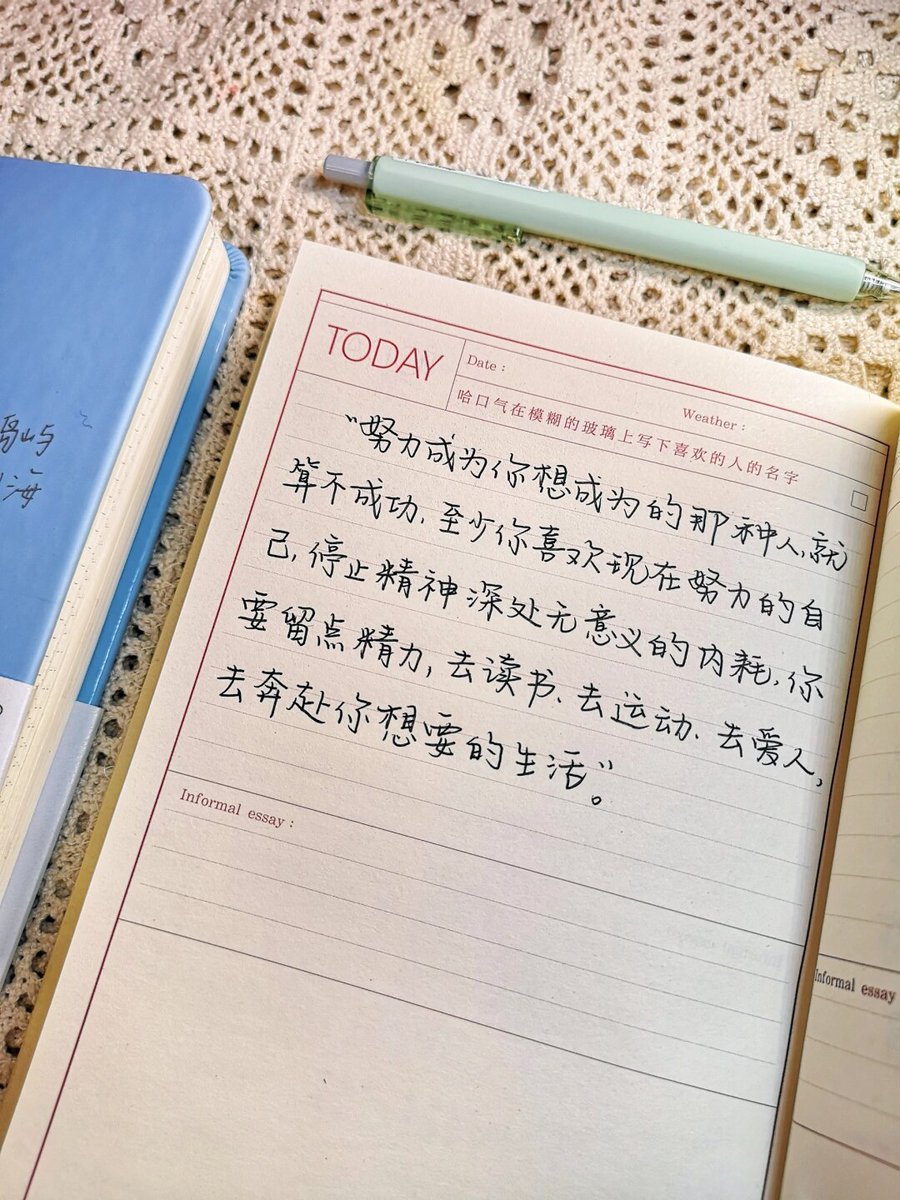 岛屿
海
TODAY
Date：
Weather：
哈口气在模糊的玻璃上写下喜欢的人的名字
“努力成为你想成为的那种人,就
算不成功、至少你喜欢现在努力的自
己,停止精神深处无意义的内耗,你
要留点精力,去读书、去运动、去爱人,
去奔赴你想要的生活”。
Informal essay：
Informal essay